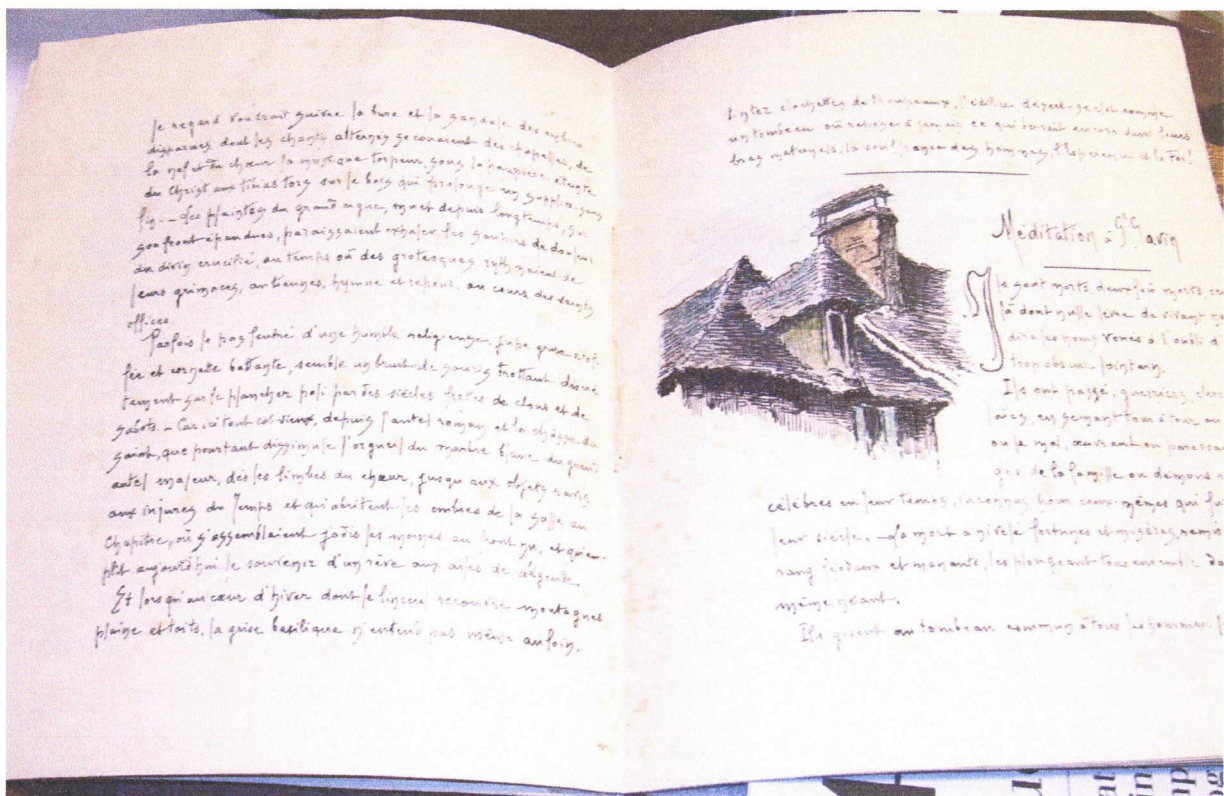 le regard voudrait suivre la bure et la sandale des ombres
disparues dont les chants alternés se couvaient des chapelles, de
la nef et du chœur la mystique torpeur, sous la paupière éteinte
du Christ aux tibias tors sur le bois qui prolonge un supplice sans
fin. - Les plaintes du grand orgue, muet depuis longtemps, sur
son front épandues, paraissaient exhaler les soupirs de douleur
du divin crucifié, au temps où des grotesques rythmaient de
leurs grimaces, antiennes, hymne et répons, au cours des saints
offices.
Parfois le pas feutré d'une humble religieuse, jupe grise
et cornette battante, semble un bruit de souris trottant discrè
tement sur le plancher poli par des siècles frottés de clous et de
sabots. - Car ici tout est vieux, depuis l'autel roman et la châsse du
saint, que pourtant dissimule l'orgueil du marbre blanc du grand
autel majeur, dès les limbes du chœur, jusqu'aux objets ravis
aux injures du Temps et qui abritent les ombres de la Salle au
Chapitre, où s'assemblaient jadis les moines au front nu, et qu'em-
plit aujourd'hui le souvenir d'un rêve aux ailes de légende.
Et lorsqu'au cœur d'hiver dont le linceul recouvre montagnes
plaine et toits, la grise basilique n'entend pas même au loin,
tinter clochettes de troupeaux, l'édifice désert se clot comme
un tombeau où repose à jamais ce qui vivait encore dans leurs
bras maternels, la souffrance des hommes, l'Espérance et la Foi!
Méditation à St Savin
Ils sont morts deux fois morts, ce
là dont nulle lèvre de vivant
dira les noms voués à l'oubli d'
trop obscur lointain.
Ils ont passé, guerriers, clercs
laïcs, en semant tour à tour
ou le mal, œuvrant en
ges de la famille ou démons
célèbres en leur temps, inconnus pour ceux-mêmes qui
leur siècle. - La mort a nivelé fortunes et misères, remis
rang féodaux et manants, les plongeant tous ensemble
même néant.
Ils gisent au tombeau commun à tous les hommes,